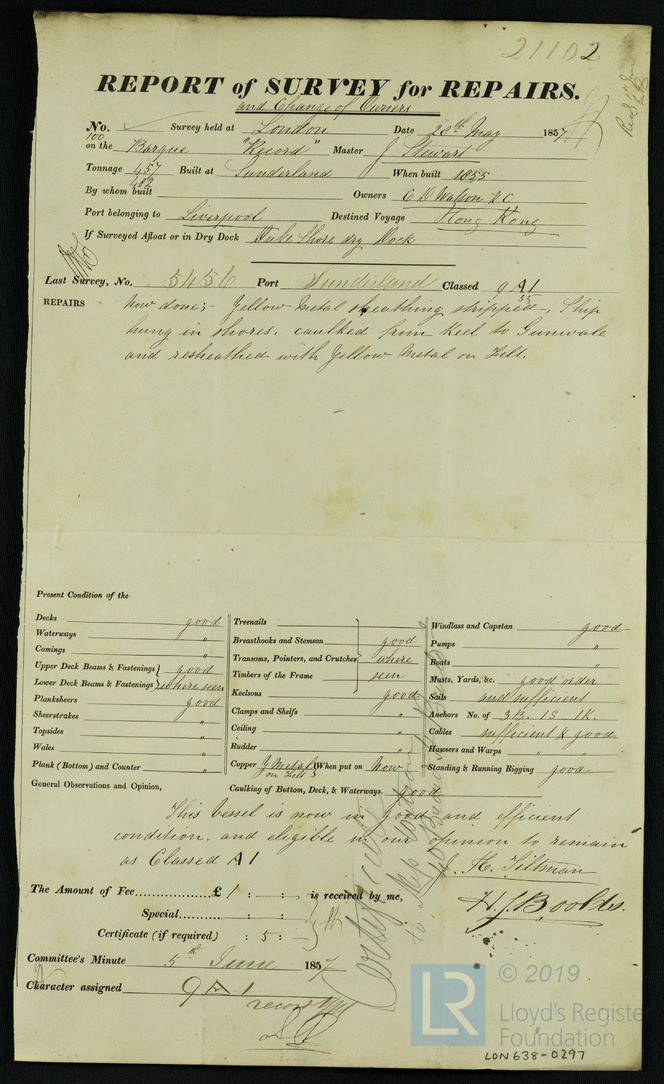 21102
REPORT of SURVEY for REPAIRS.
and Change of Owners
No. Survey held at London Date 20th May 1857
on the Barque "Record" Master J Stewart
Tonnage 457 Built at Sunderland When built 1855
483
By whom built Owners C D Watson & C
Port belonging to Liverpool Destined Voyage Hong Kong
If Surveyed Afloat or in Dry Dock Duke Shore dry Dock
Last Survey, No. 5456 Port Sunderland Classed 9 A1
55
REPAIRS Now done;- Yellow Metal sheathing stripped, Ship
hung in shores, caulked from Keel to Gunwale
and resheathed with Yellow Metal on Felt.
Present Condition of the
Decks good
Waterways "
Comings "
Upper Deck Beams & Fastenings good
Lower Deck Beams & Fastenings where seen
Planksheers good
Sheerstrakes "
Topsides "
Wales "
Plank (Bottom) and Counter "
Treenails
Breasthooks and Stemson good
Transoms, Pointers, and Crutches where
Timbers of the Frame seen
Keelsons good
Clamps and Shelfs "
Ceiling "
Rudder "
Copper Y Metal on Felt (When put on Now
Caulking of Bottom, Deck, & Waterways good
Windlass and Capstan good
Pumps "
Boats "
Masts, Yards, &c. good order
Sails and sufficient
Anchors No. of 3B. 1S. 1K.
Cables sufficient & good
Hawsers and Warps " "
Standing & Running Rigging good
General Observations and Opinion,
This Vessel is now in good and efficient
condition, and eligible in our opinion to remain
as Classed A1
J. H. Tiltman
H J Boolds.
The Amount of Fee £1 : - : - is received by me,
Special : - :
Certificate (if required) : 5 : -
Certificate
Committee's Minute 5th June 1857
Character assigned 9 A 1
© 2019
LR
Lloyd's Register
Foundation
LON638-0297